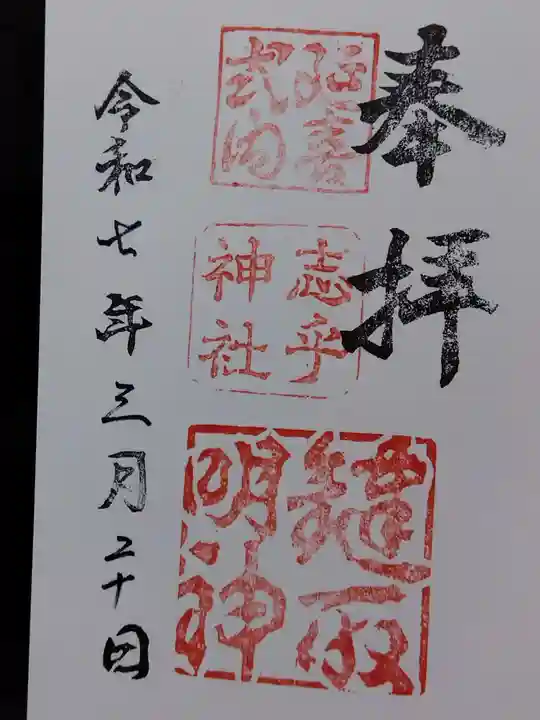 奉拝
延喜
式内
志乎
神社
鎚取
明神
令和七年三月二十日